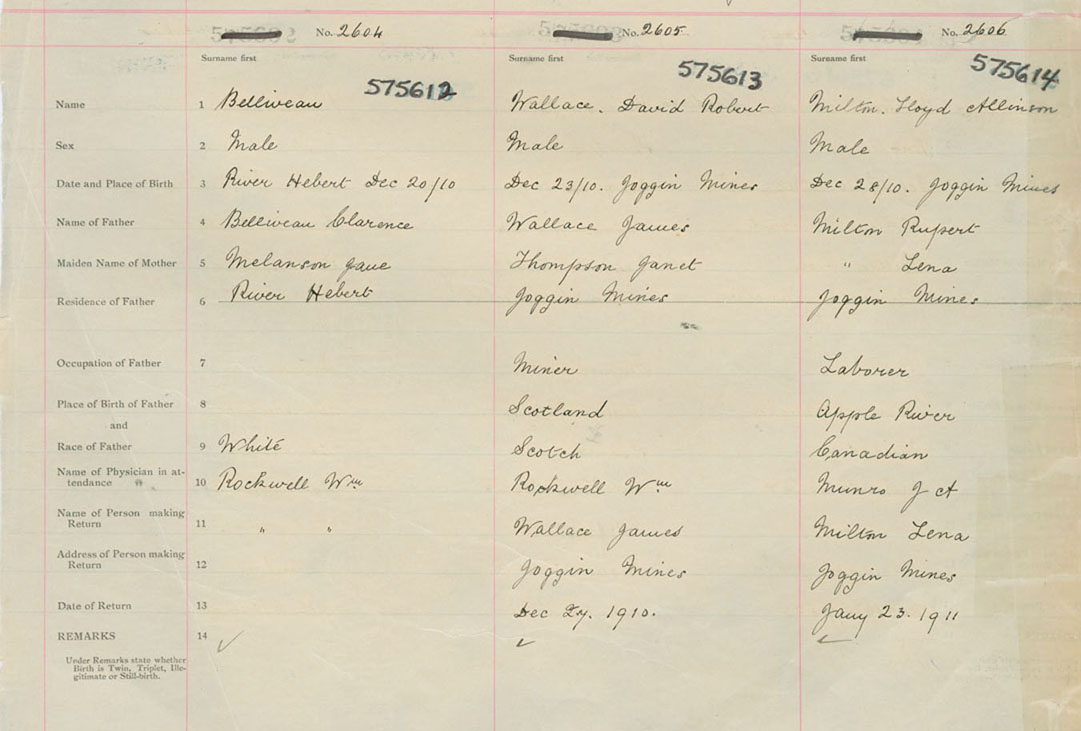 No. 2604 No. 2605 No. 2606
Surname first Surname first Surname first
575612 575613 575614
Name 1 Belliveau Wallace. David Robert Milton. Lloyd Allinson
Sex 2 Male Male Male
Date and Place of Birth 3 River Hebert Dec 20/10 Dec 23/10. Joggin Mines Dec 28/10. Joggin Mines
Name of Father 4 Belliveau Clarence Wallace James Milton Rupert
Maiden Name of Mother 5 Melanson Jane Thompson Janet " Lena
Residence of Father 6 River Hebert Joggin Mines Joggin Mines
Occupation of Father 7 Miner Laborer
Place of Birth of Father 8 Scotland Apple River
and
Race of Father 9 White Scotch Canadian
Name of Physician in at-
tendance 10 Rockwell Wm Rockwell Wm Munro J A
Name of Person making
Return 11 " " Wallace James Milton Lena
Address of Person making
Return 12 Joggin Mines Joggin Mines
Date of Return 13 Dec 27. 1910. Jany 23. 1911
REMARKS 14 ✓ ✓ ✓
Under Remarks state whether
Birth is Twin, Triplet, Ille-
gitimate or Still-birth.